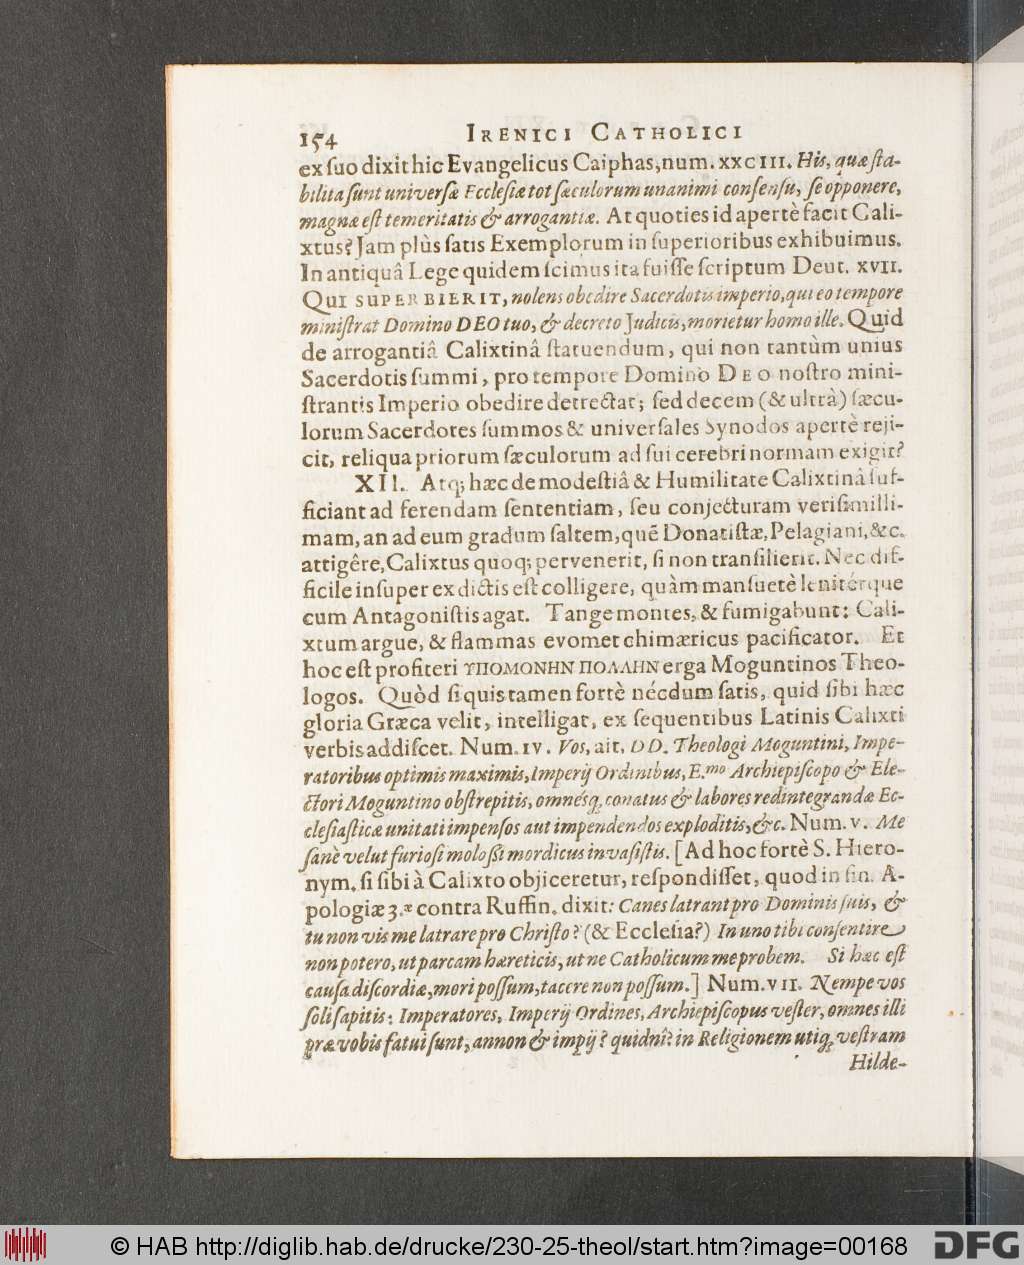 154 IRENICI CATHOLICI
ex ſuo dixit hic Evangelicus Caiphas, num. XXCIII. His, quæ ſta-
bilita ſunt univerſæ Eccleſiæ tot ſæculorum unanimi conſenſu, ſe opponere,
magnæ eſt temeritatis & arrogantiæ. At quoties id apertè facit Cali-
xtus? Jam plùs ſatis Exemplorum in ſuperioribus exhibuimus.
In antiquâ Lege quidem ſcimus ita fuiſſe ſcriptum Deut. XVII.
QUI SUPERBIERIT, nolens obedire Sacerdotis imperio, qui eo tempore
miniſtrat Domino DEO tuo, & decreto Judicis, morietur homo ille. Quid
de arrogantiâ Calixtinâ ſtatuendum, qui non tantùm unius
Sacerdotis ſummi, pro tempore Domino DEO noſtro mini-
ſtrantis Imperio obedire detrectat; ſed decem (& ultrà) ſæcu-
lorum Sacerdotes ſummos & univerſales Synodos apertè reji-
cit, reliqua priorum ſæculorum ad ſui cerebri normam exigit?
XII. Atq; hæc de modeſtiâ & Humilitate Calixtinâ ſuf-
ficiant ad ferendam ſententiam, ſeu conjecturam veriſimilli-
mam, an ad eum gradum ſaltem, quē Donatiſtæ, Pelagiani, &c.
attigêre, Calixtus quoq; pervenerit, ſi non tranſilierit. Nec dif-
ficile inſuper ex dictis eſt colligere, quàm manſuetè lenitérque
cum Antagoniſtis agat. Tange montes, & fumigabunt: Cali-
xtum argue, & flammas evomet chimæricus pacificator. Et
hoc eſt profiteri ΥΠΟΜΟΝΗΝ ΠΟΛΛΗΝ erga Moguntinos Theo-
logos. Quòd ſi quis tamen fortè nécdum ſatis, quid ſibi hæc
gloria Græca velit, intelligat, ex ſequentibus Latinis Calixti
verbis addiſcet. Num. IV. Vos, ait, DD. Theologi Moguntini, Impe-
ratoribus optimis maximis, Imperij Ordinibus, E.mo Archiepiſcopo & Ele-
ctori Moguntino obſtrepitis, omnésq; conatus & labores redintegrandæ Ec-
cleſiaſticæ unitati impenſos aut impendendos exploditis, &c. Num. V. Me
ſanè velut furioſi moloſſi mordicus invaſiſtis. [Ad hoc fortè S. Hiero-
nym. ſi ſibi à Calixto objiceretur, reſpondiſſet, quod in fin. A-
pologiæ 3.æ contra Ruffin. dixit: Canes latrant pro Dominis ſuis, &
tu non vis me latrare pro Chriſto? (& Eccleſia?) In uno tibi conſentire
non potero, ut parcam hæreticis, ut ne Catholicum me probem. Si hæc eſt
cauſa diſcordiæ, mori poſſum, tacere non poſſum.] Num. VII. Nempe vos
ſoli ſapitis: Imperatores, Imperij Ordines, Archiepiſcopus veſter, omnes illi
præ vobis fatui ſunt, annon & impij? quidnî? in Religionem utiq; veſtram
Hilde-
© HAB http://diglib.hab.de/drucke/230-25-theol/start.htm?image=00168
DFG